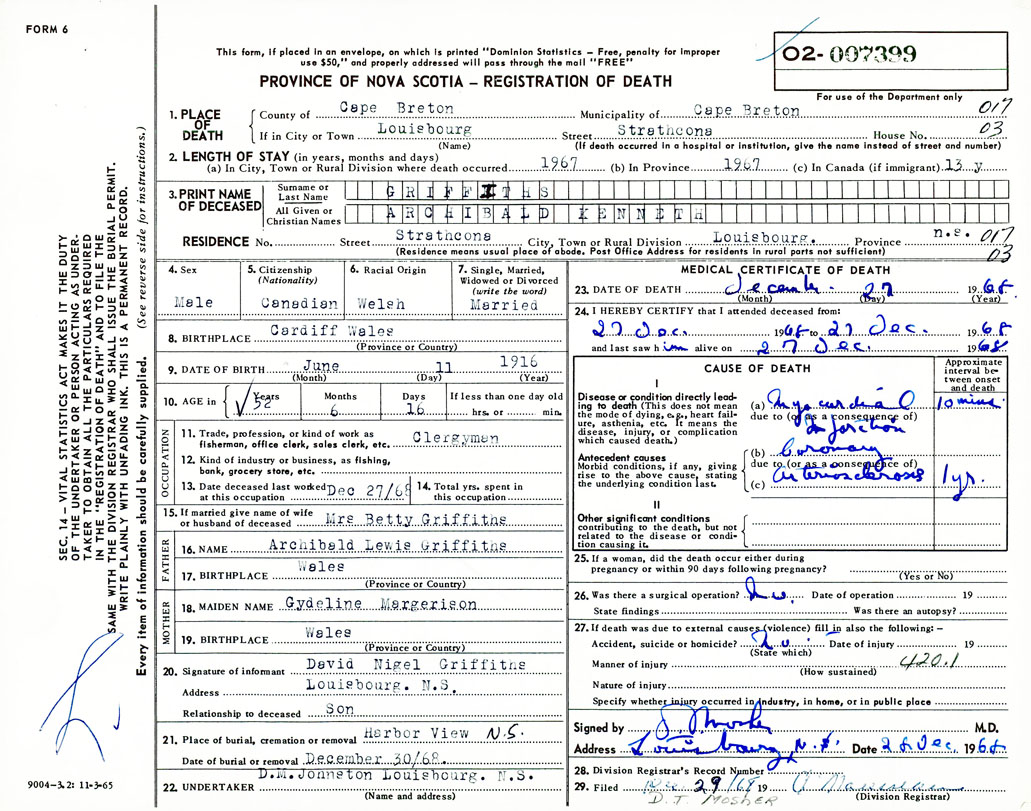 FORM 6
This form, if placed in an envelope, on which is printed "Dominion Statistics – Free, penalty for improper
use $50," and properly addressed will pass through the mail "FREE"
PROVINCE OF NOVA SCOTIA – REGISTRATION OF DEATH
02-007399
For use of the Department only
1. PLACE OF DEATH
County of Cape Breton Municipality of Cape Breton 017
If in City or Town Louisbourg Street Strathcona House No. 03
(Name) (If death occurred in a hospital or institution, give the name instead of street and number)
2. LENGTH OF STAY (in years, months and days)
(a) In City, Town or Rural Division where death occurred 1967 (b) In Province 1967 (c) In Canada (if immigrant) 13 y
3. PRINT NAME OF DECEASED
Surname or Last Name GRIFFITHS
All Given or Christian Names ARCHIBALD KENNETH
RESIDENCE No. Street Strathcona City, Town or Rural Division Louisbourg. Province n.s. 017
(Residence means usual place of abode. Post Office Address for residents in rural parts not sufficient) 03
4. Sex
Male
5. Citizenship
(Nationality)
Canadian
6. Racial Origin
Welsh
7. Single, Married,
Widowed or Divorced
(write the word)
Married
8. BIRTHPLACE Cardiff Wales
(Province or Country)
9. DATE OF BIRTH June 11 1916
(Month) (Day) (Year)
10. AGE in Years Months Days If less than one day old
52 6 16 hrs. or min.
OCCUPATION
11. Trade, profession, or kind of work as
fisherman, office clerk, sales clerk, etc. Clergyman
12. Kind of industry or business, as fishing,
bank, grocery store, etc.
13. Date deceased last worked
at this occupation Dec 27/68
14. Total yrs. spent in
this occupation
15. If married give name of wife
or husband of deceased Mrs Betty Griffiths
FATHER
16. NAME Archibald Lewis Griffiths
17. BIRTHPLACE Wales
(Province or Country)
MOTHER
18. MAIDEN NAME Gydeline Margerison
19. BIRTHPLACE Wales
(Province or Country)
20. Signature of informant David Nigel Griffiths
Address Louisbourg. N.S.
Relationship to deceased Son
21. Place of burial, cremation or removal Harbor View N.S.
Date of burial or removal December 30/68.
22. UNDERTAKER D.M.Johnston Louisbourg. N.S.
(Name and address)
MEDICAL CERTIFICATE OF DEATH
23. DATE OF DEATH December 27 1968
(Month) (Day) (Year)
24. I HEREBY CERTIFY that I attended deceased from:
27 Dec. 1968 to 27 Dec. 1968
and last saw him alive on 27 Dec. 1968
CAUSE OF DEATH
Approximate
interval be-
tween onset
and death
I
Disease or condition directly lead-
ing to death (This does not mean
the mode of dying, e.g., heart fail-
ure, asthenia, etc. It means the
disease, injury, or complication
which caused death.)
(a) Myocardial 10 mins.
due to (or as a consequence of)
Infarction
Antecedent causes
Morbid conditions, if any, giving
rise to the above cause, stating
the underlying condition last.
(b) Coronary
due to (or as a consequence of)
(c) Arteriosclerosis 1 yr.
II
Other significant conditions
contributing to the death, but not
related to the disease or condi-
tion causing it.
25. If a woman, did the death occur either during
pregnancy or within 90 days following pregnancy?
(Yes or No)
26. Was there a surgical operation? No. Date of operation 19
State findings Was there an autopsy?
27. If death was due to external causes (violence) fill in also the following: –
Accident, suicide or homicide? No. Date of injury 19
(State which)
Manner of injury 420.1
(How sustained)
Nature of injury
Specify whether injury occurred in industry, in home, or in public place
Signed by Mosher M.D.
Address Louisbourg, N.S. Date 28 Dec. 1968
28. Division Registrar's Record Number
29. Filed Dec. 29/68 19
(Division Registrar)
D. J. MOSHER
SEC. 14 – VITAL STATISTICS ACT MAKES IT THE DUTY
OF THE UNDERTAKER OR PERSON ACTING AS UNDER-
TAKER TO OBTAIN ALL THE PARTICULARS REQUIRED
IN THE "REGISTRATION OF DEATH" AND TO FILE THE
SAME WITH THE DIVISION REGISTRAR WHO SHALL ISSUE THE BURIAL PERMIT.
WRITE PLAINLY WITH UNFADING INK. THIS IS A PERMANENT RECORD.
Every item of information should be carefully supplied. (See reverse side for instructions.)
9004-3.2: 11-3-65